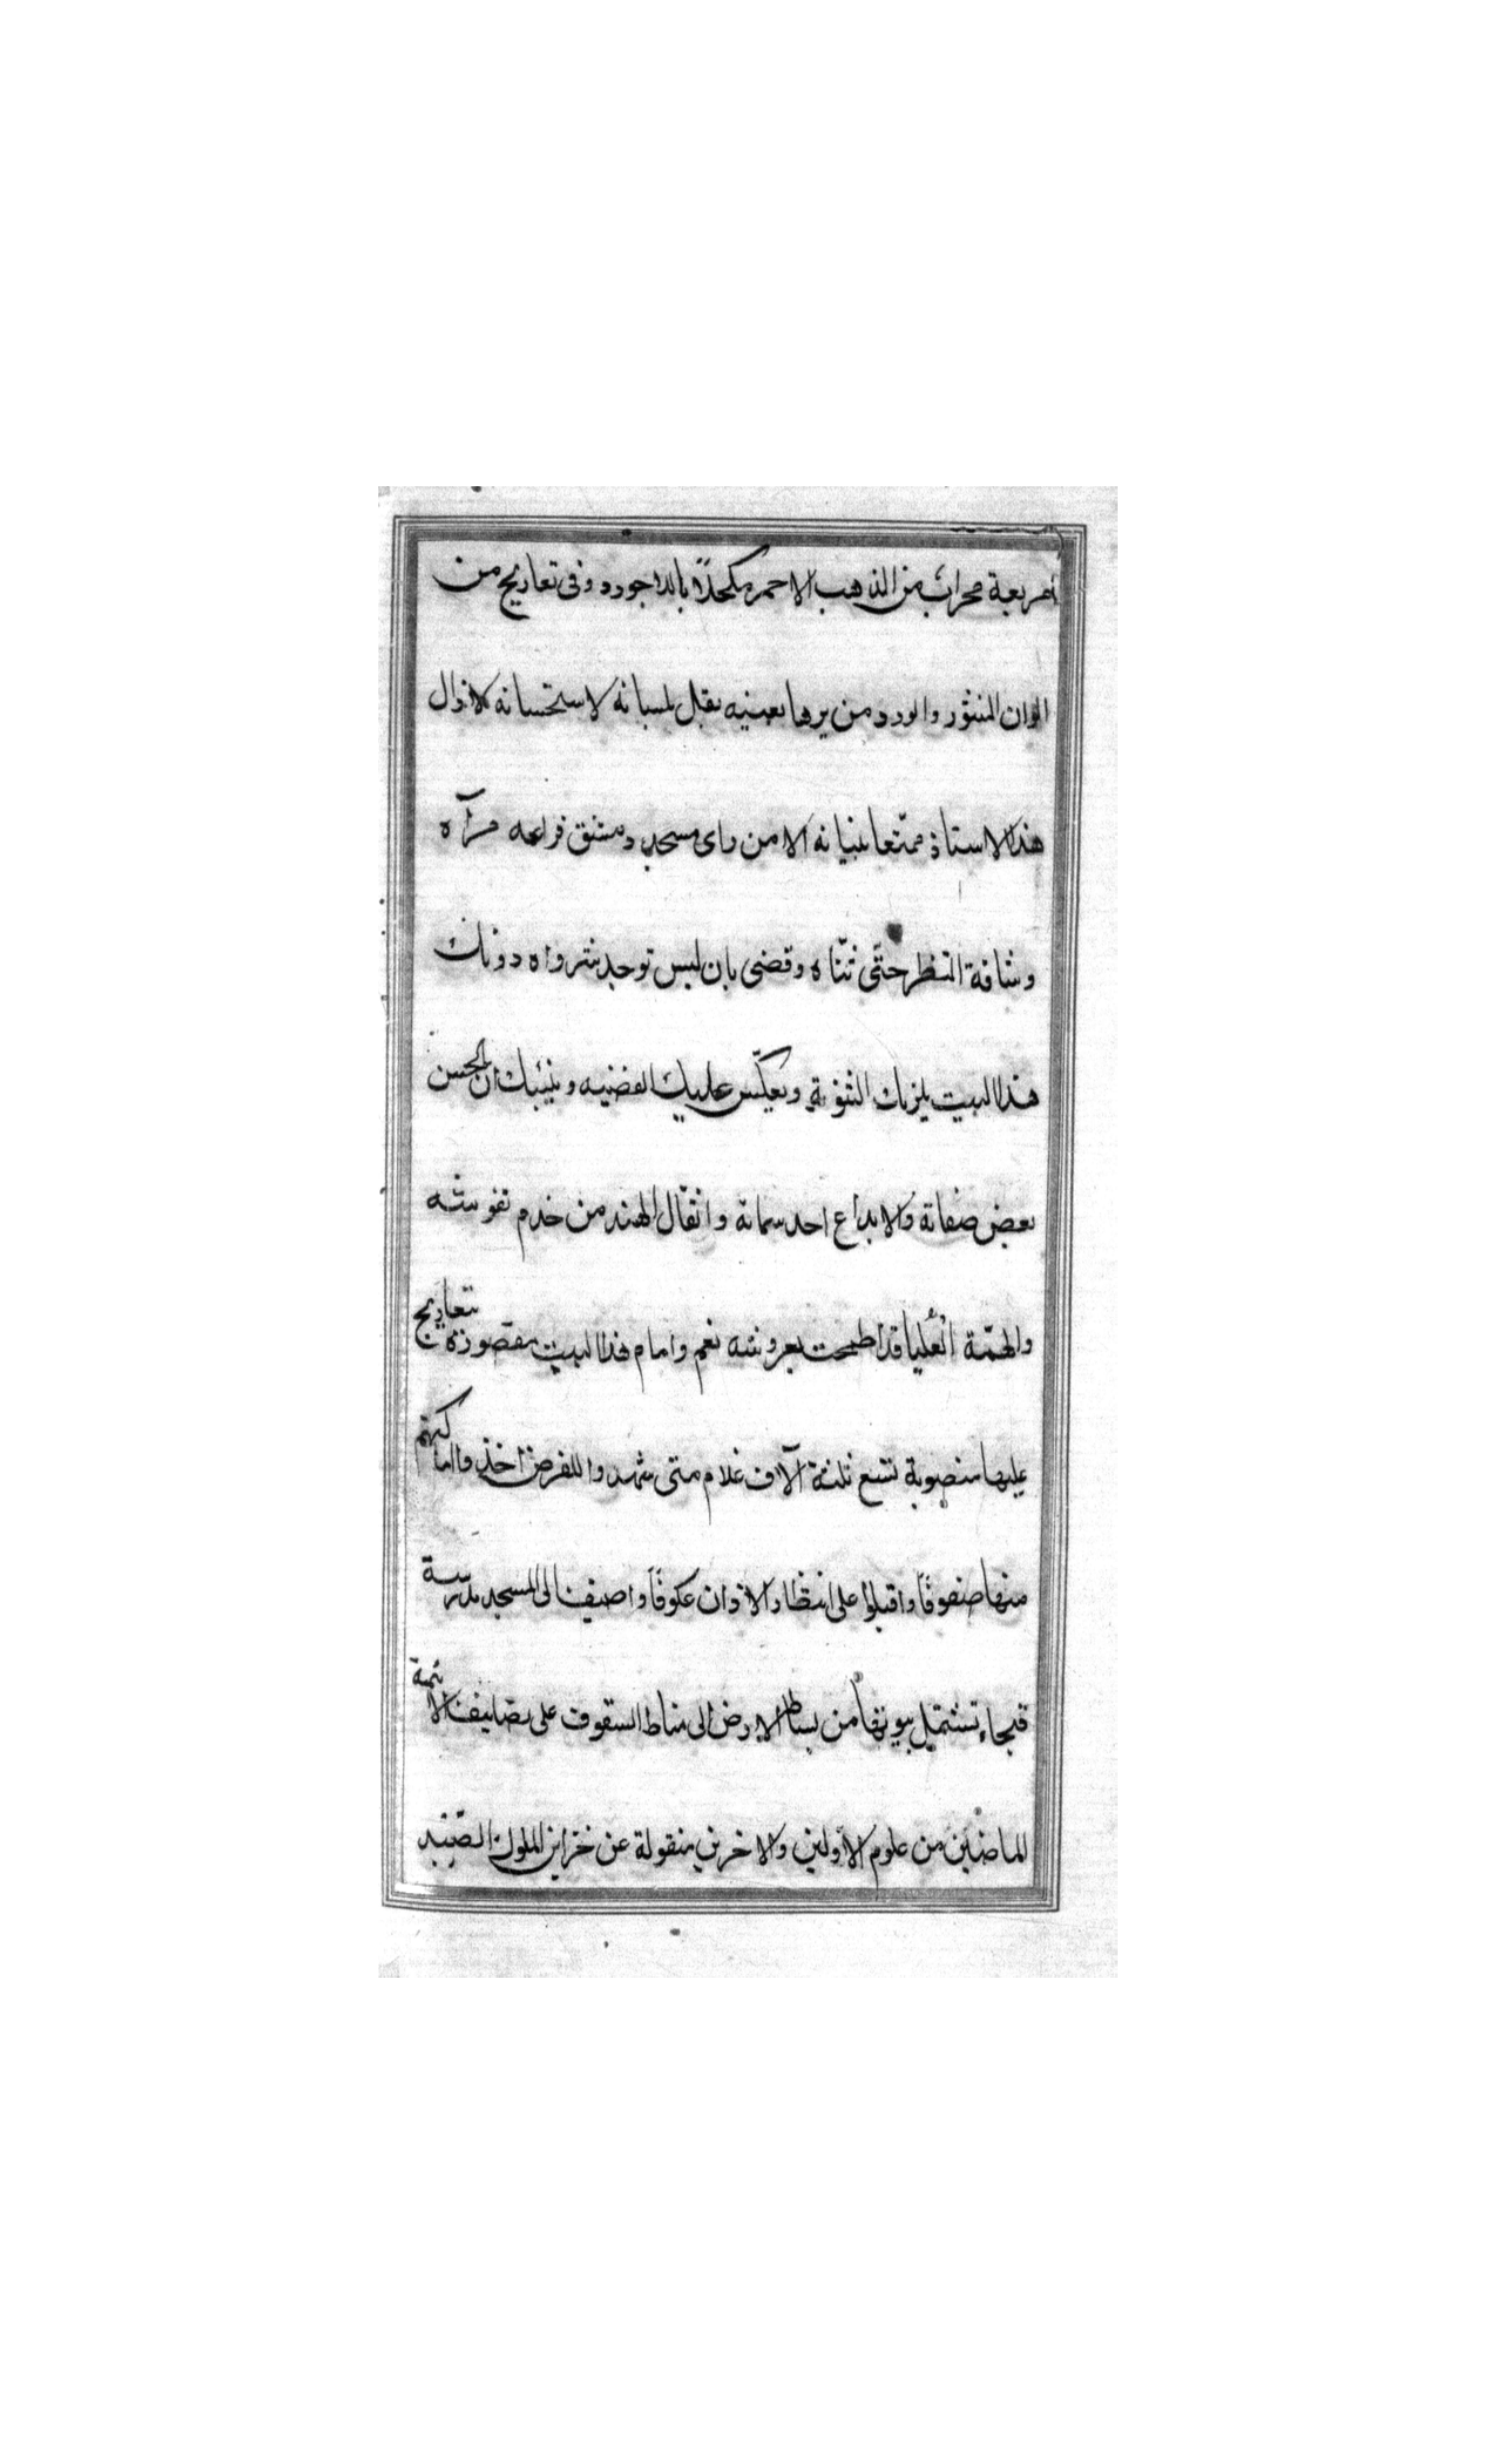 اربعة محراب من الذهب الاحمر مكحلاً بالداجورد وفى تعاريج من
الوان المنثور والورد من يرها بعينيه يقل بلسانه لاستحسانه لا زال
هذا الاستاذ ممتعا ببنيانه الا من راى مسجد دمشق فراعه مرآه
وشافة النظر حتّى ثنّاه وقضى بان ليس توجد شرواه دونك
هذا البيت يلزمك الثنويّة ويعكّس عليك القضيه وينبئك ان الحسن
بعض صفاته والابداع احد سماته وانقال الهند من خدم نقوشه
والهمّة العُليا قد اطمحت بعروشه نعم وامام هذا البيت مقصورة بتعاريج
عليها منصوبة تسع ثلثة آلاف غلام متى شهدوا للفرض اخذوا اماكنهم
منها صفوفًا واقبلوا على انتظار الاذان عكوفًا واضيف الى المسجد مدرسة
فيحاء تشتمل بيوتها من بساط الارض الى مناط السقوف على تصانيف الائمة
الماضين من علوم الاولين والاخرين منقولة عن خزاين الملوك الصّيد